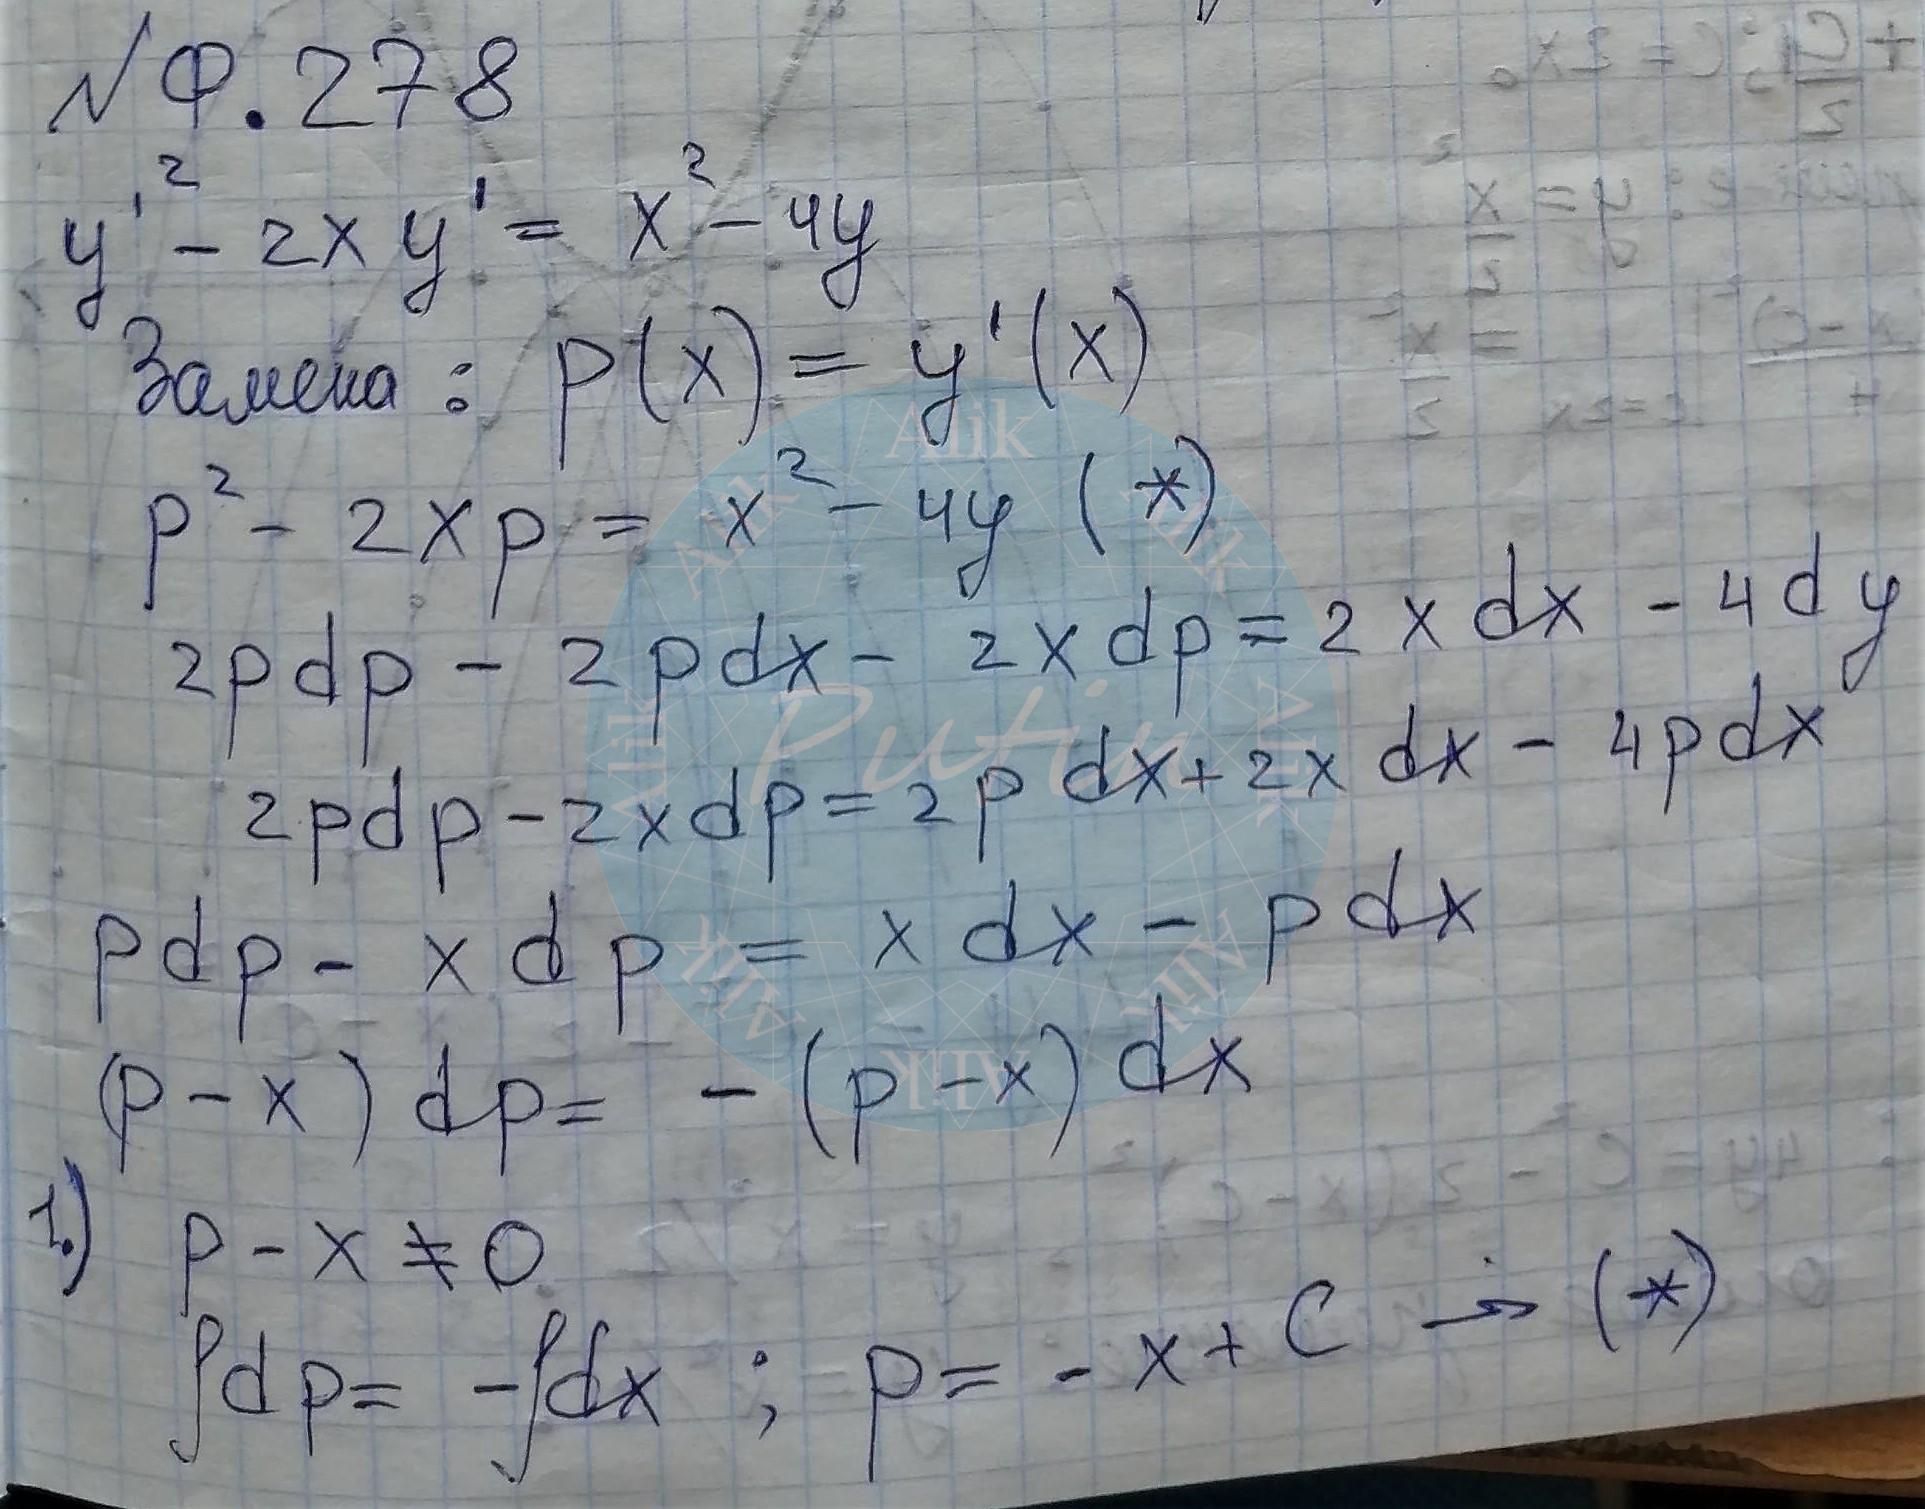 № Ф.278
y'² - 2xy' = x² - 4y
Замена: p(x) = y'(x)
p² - 2xp = x² - 4y (*)
2pdp - 2pdx - 2xdp = 2xdx - 4dy
2pdp - 2xdp = 2pdx + 2xdx - 4pdx
pdp - xdp = xdx - pdx
(p - x)dp = -(p - x)dx
1.) p - x ≠ 0
∫dp = -∫dx ; p = -x + C → (*)
Alik Alik Alik Alik Alik Alik Alik Alik
Putin